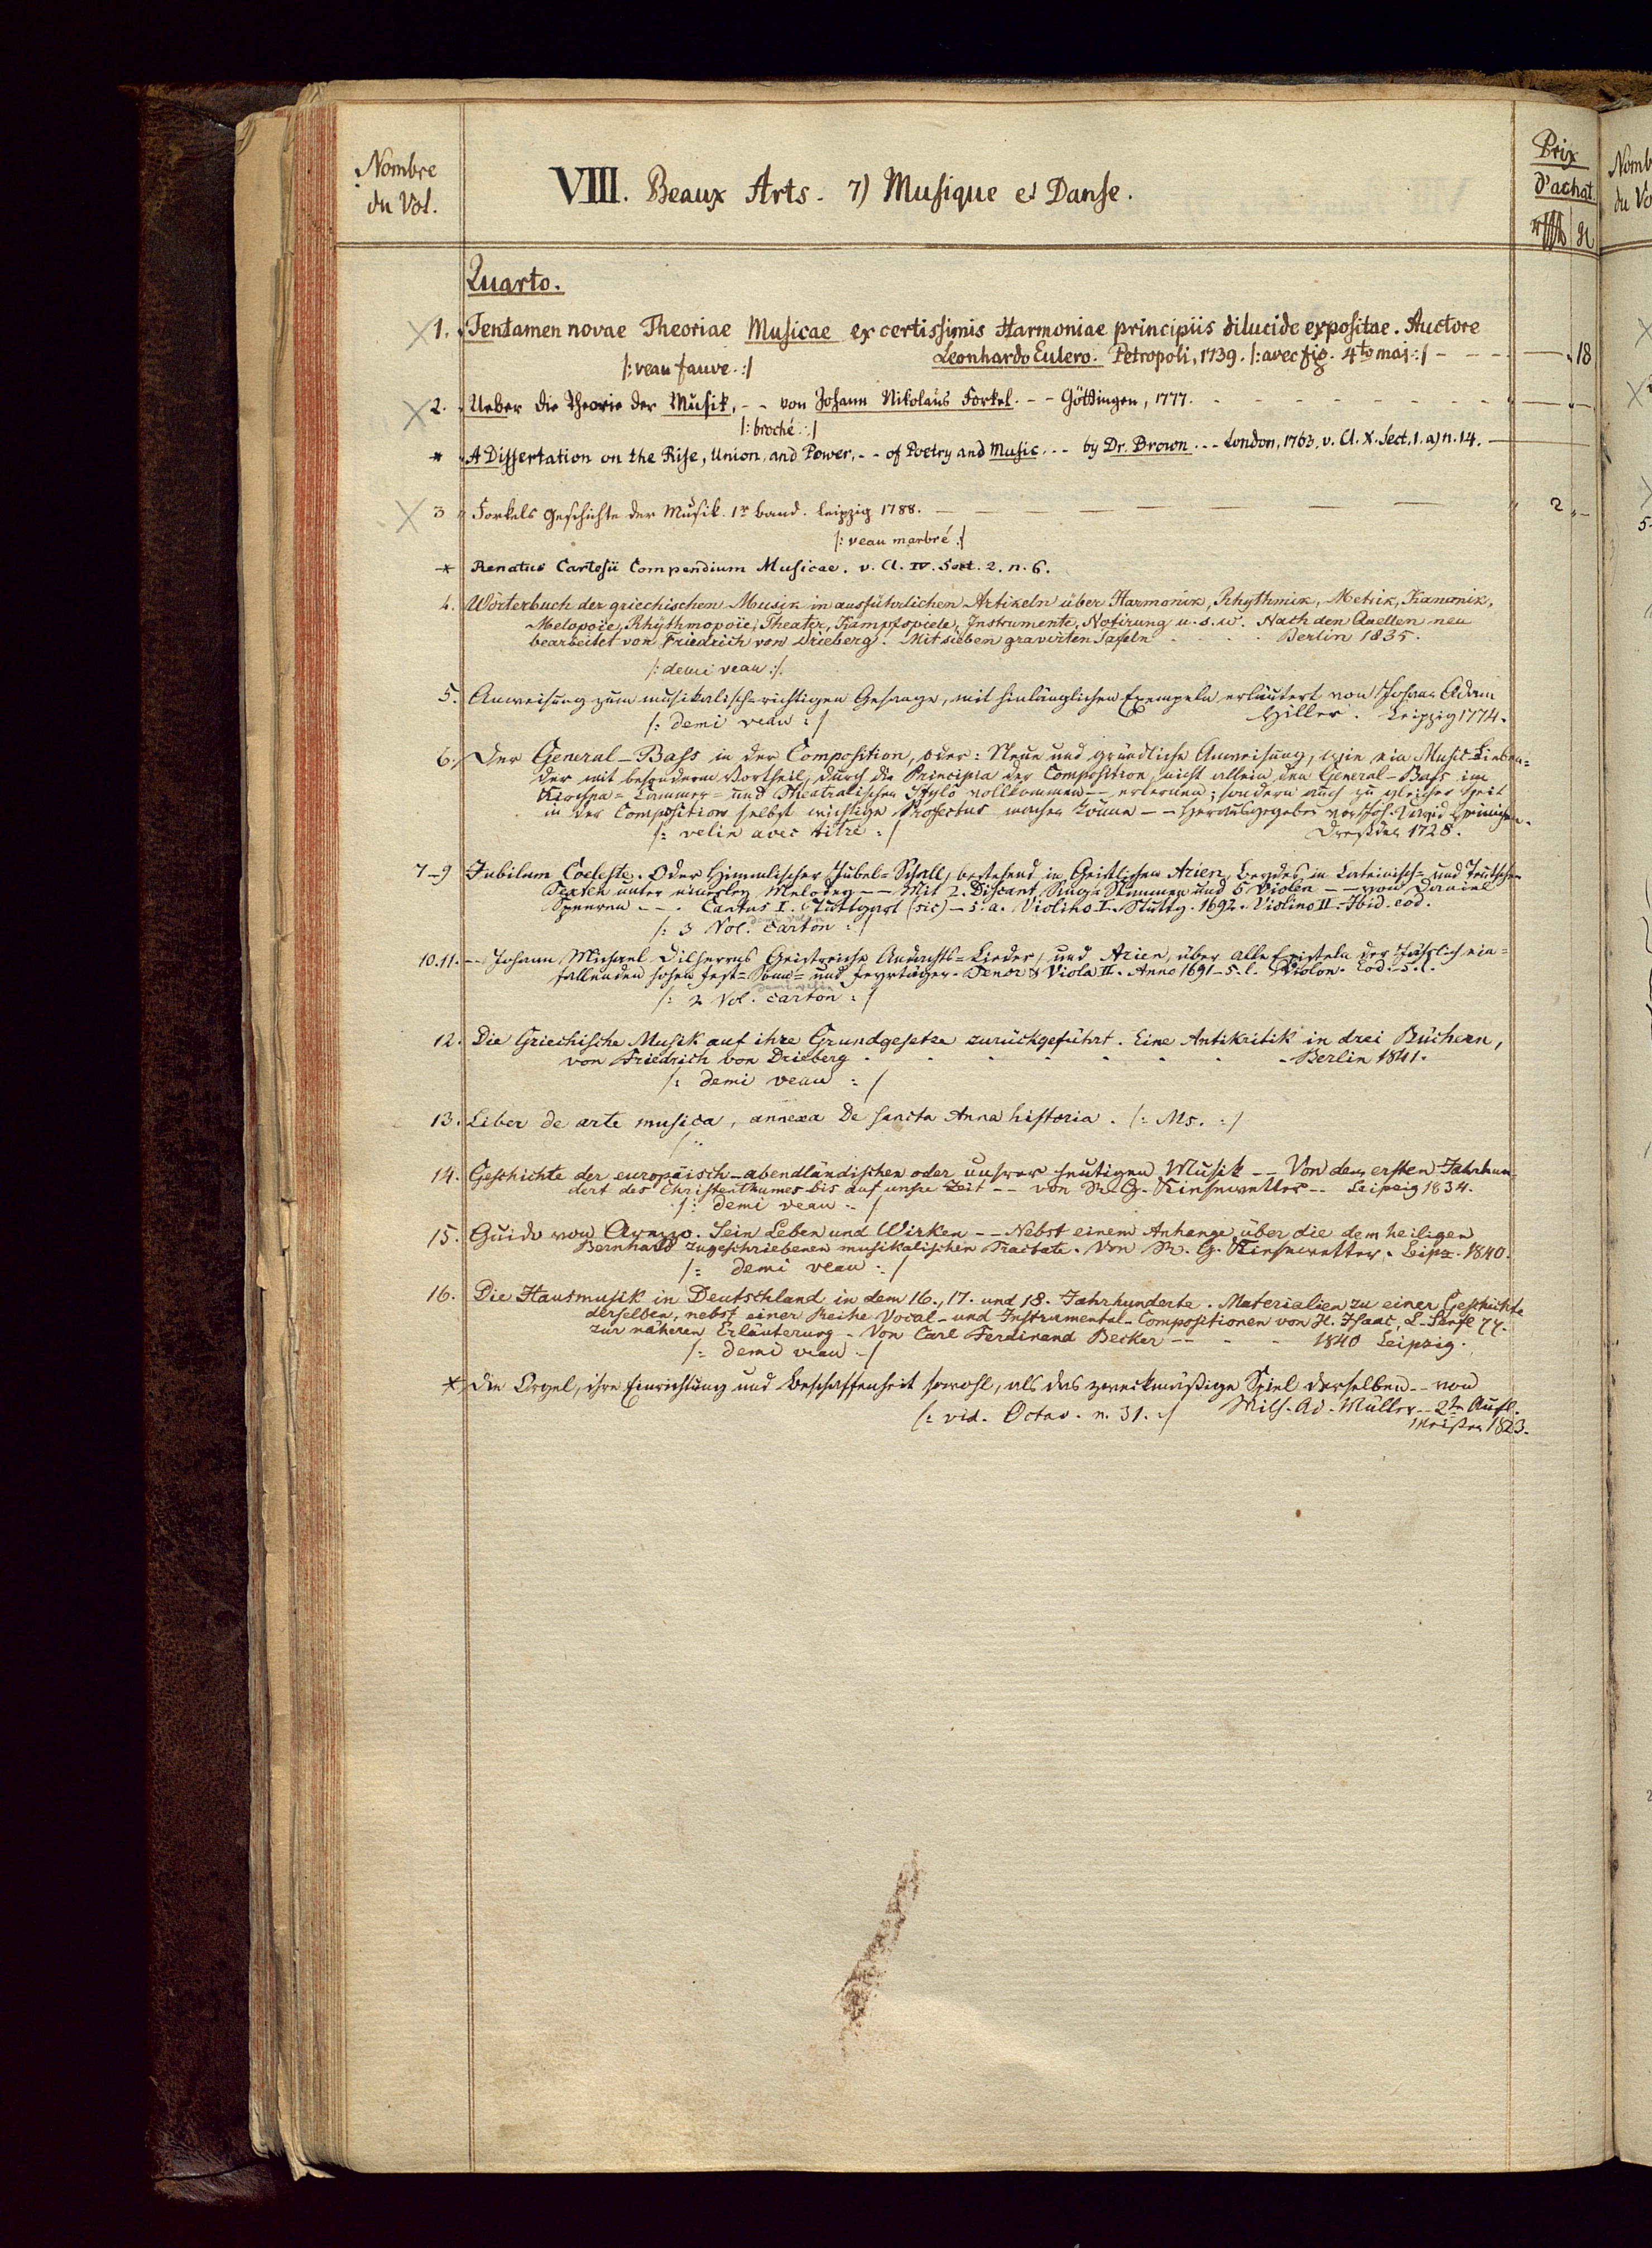 Nombre
du Vol.
VIII. Beaux Arts. 7) Musique et Danse.
Prix
d'achat.
Quarto.
1. Tentamen novae Theoriae Musicae ex certissimis Harmoniae principiis dilucide expositae. Auctore
Leonhardo Eulero. Petropoli, 1739. /: avec fig. 4to maj :/ - - - 18
/: veau fauve. :/
2. Ueber die Theorie der Musik, - - von Johann Nikolaus Forkel. - - Göttingen, 1777.
/: broché :/
* A Dissertation on the Rise, Union, and Power, - - of Poetry and Music. - - by Dr. Brown. - - London, 1763, v. Cl. X. Sect. 1. a) n. 14.
3 Forkels Geschichte der Musik. 1r band. Leipzig 1788. - 2 -
/: veau marbré :/
* Renatus Cartesii Compendium Musicae. v. Cl. IV. Sect. 2. n. 6.
4. Wörterbuch der griechischen Musik in ausführlichen Artikeln über Harmonik, Rhythmik, Metrik, Kanonik,
Melopoïe, Rhythmopoïe, Theater, Kampfspiele, Instrumente, Notirung u. s. w. Nach den Quellen neu
bearbeitet von Friedrich von Drieberg. Mit sieben gravirten Tafeln Berlin 1835.
/: demi veau :/
5. Anweisung zum musikalisch-richtigen Gesange, mit hinlänglichen Exempeln erläutert von Johann Adam
/: demi veau :/ Hiller. Leipzig 1774.
6. Der General-Bass in der Composition, oder: Neue und gründliche Anweisung, wie ein Music-Lieben=
der mit besonderm Vortheil, durch die Principia der Composition, nicht allein den General-Bass im
Kirchen= Cammer= und Theatralischen Stylô vollkommen -- erlernen; sondern auch zu gleicher Zeit
in der Composition selbst wichtige Profectus machen könne -- Herausgegeben von Joh. David Heinichen.
/: velin avec titre :/ Dresden 1728.
7-9 Jubilum Coeleste. Oder Himmlischer Jubel-Schall, bestehend in Geistlichen Arien, beydes in Lateinisch= und Teutschen
Texten unter einerley Melodey -- Mit 2. Discant Sing-Stimmen und 5 Violen -- von Daniel
Speeren - - . Cantus I. Stuttgart (sic) - s. a. Violino I. Stuttg. 1692. Violino II. Ibid. eod.
demi velin
/: 3 Vol. carton :/
10.11. -- Johann Michael Dilherrns Geistreiche Andachts-Lieder, und Arien, über alle Episteln der Jährlich ein=
fallenden hohen Fest= Sonn= und Feyrtäger. Tenor & Viola II. Anno 1691 - s. l. Violon. Eod. s. l.
demi velin
/: 2 Vol. carton :/
12. Die Griechische Musik auf ihre Grundgesetze zurückgeführt. Eine Antikritik in drei Büchern,
von Friedrich von Drieberg - Berlin 1841.
/: demi veau :/
13. Liber de arte musica, annexa De sancta Anna historia. /: Ms. :/
14. Geschichte der europäisch-abendländischen oder unsrer heutigen Musik -- Von dem ersten Jahrhun-
dert des Christenthumes bis auf unsre Zeit -- von R. G. Kiesewetter -- Leipzig 1834.
/: demi veau :/
15. Guido von Arezzo. Sein Leben und Wirken -- Nebst einem Anhange über die dem heiligen
Bernhard zugeschriebenen musikalischen Tractate. Von R. G. Kiesewetter. Leipz. 1840.
/: demi veau :/
16. Die Hausmusik in Deutschland in dem 16., 17. und 18. Jahrhunderte. Materialien zu einer Geschichte
derselben, nebst einer Reihe Vocal- und Instrumental-Compositionen von H. Isaac, L. Senfl
zur näheren Erläuterung - Von Carl Ferdinand Becker -- 1840 Leipzig.
/: demi veau :/
* Die Orgel, ihre Einrichtung und Beschaffenheit sowohl, als das zweckmäßige Spiel derselben -- von
/: vid. Octav. n. 31. :/ Wilh. Ad. Müller -- 2te Aufl.
Meißen 1823.
Nomb
du Vo